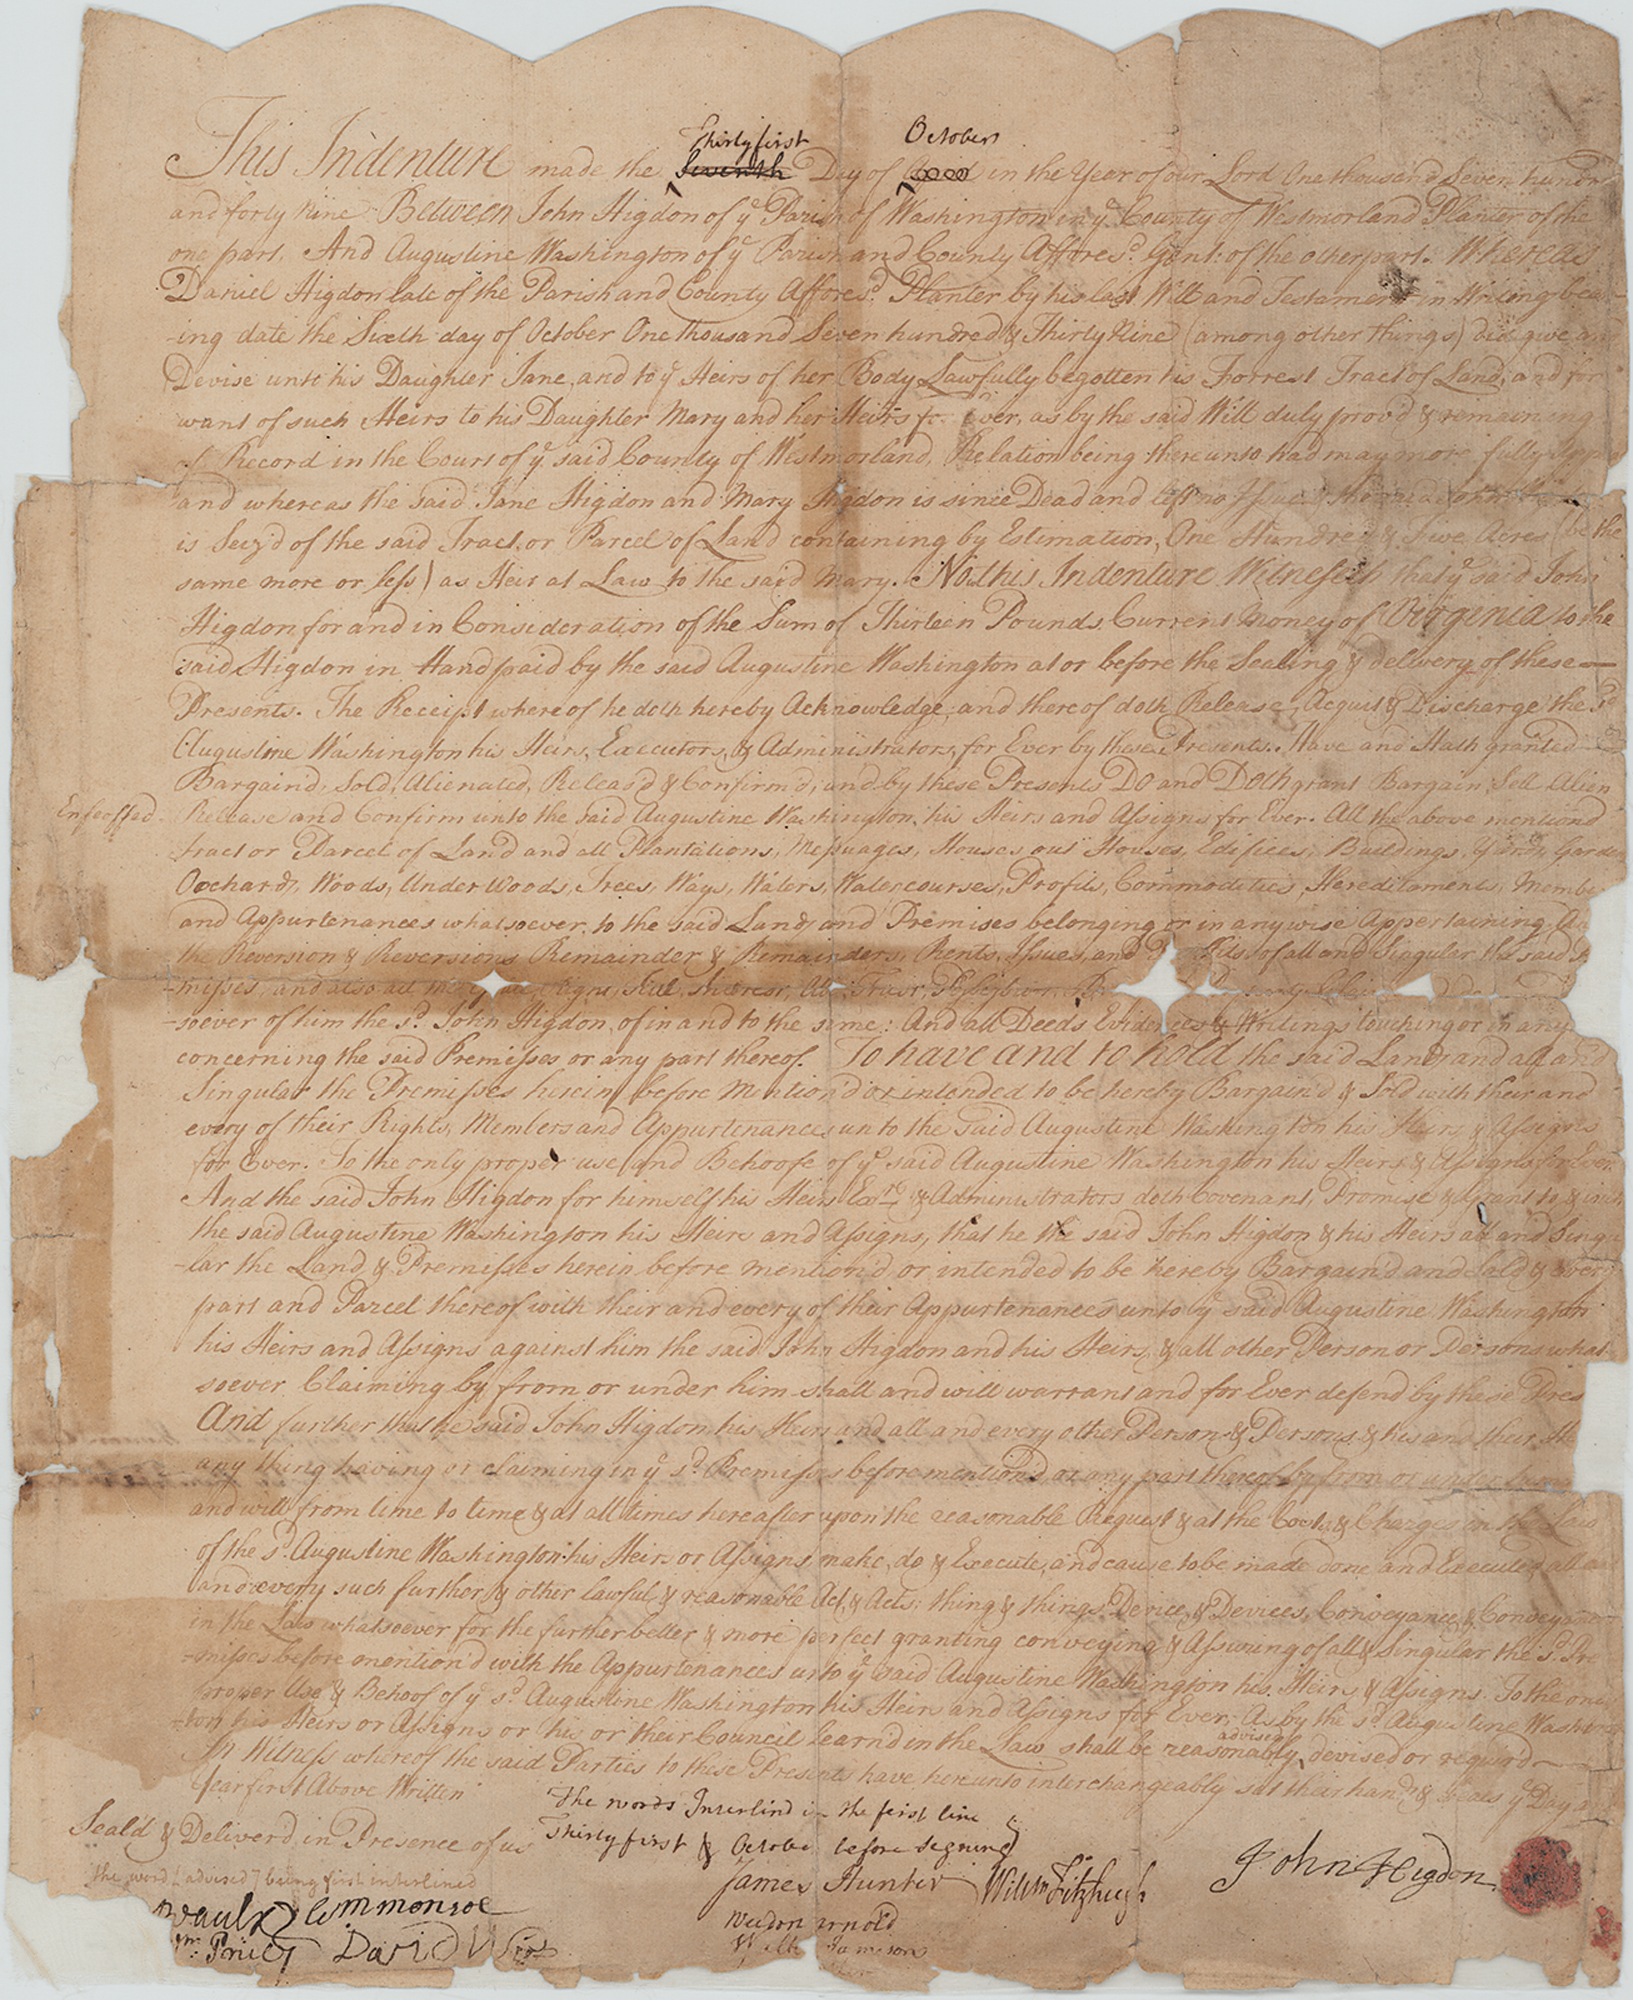 Thirty first October
This Indenture made the Seventh Day of in the Year of our Lord One thousand Seven hundr
and forty Nine Between John Higdon of ye Parish of Washington in ye County of Westmorland Planter of the
one part, And Augustine Washington of ye Parish and County Affores:d Gent: of the other part. Whereas
Daniel Higdon late of the Parish and County Affores:d Planter by his last Will and Testament in Writing bear-
-ing date the Sixth day of October One thousand Seven hundred & Thirty Nine (among other things) did give and
Devise unto his Daughter Jane, and to ye Heirs of her Body Lawfully begotten his Forrest Tract of Land, and for
want of such Heirs to his Daughter Mary and her Heirs for Ever, as by the said Will duly prov'd & remaining
of Record in the Court of ye said County of Westmorland, Relation being thereunto had may more fully appe
and whereas the said Jane Higdon and Mary Higdon is since Dead and left no Issue & the said John
is Seiz'd of the said Tract or Parcel of Land containing by Estimation, One Hundred & Five Acres (be the
same more or less) as Heir at Law to the said Mary. Now this Indenture Witnesseth that ye said John
Higdon for and in Consideration of the Sum of Thirteen Pounds Current Money of Virginia to the
said Higdon in Hand paid by the said Augustine Washington at or before the Sealing & delivery of these
Presents. The Receipt whereof he doth hereby Acknowledge, and thereof doth Release, Acquit & Discharge the sd
Augustine Washington his Heirs, Executors, & Administrators, for Ever by these Presents. Have and Hath granted
Bargain'd, Sold, Alienated, Releas'd & Confirm'd, and by these Presents Do and Doth grant Bargain, Sell Alien
Enfeoffed. Release and Confirm unto the said Augustine Washington, his Heirs and Assigns for Ever. All the above mentiond
tract or Parcel of Land and all Plantations, Messuages, Houses out Houses, Edifices, Buildings, Garden
Orchards, Woods, Under Woods, Trees, Ways, Waters, Watercourses, Profits, Commodities, Hereditaments, Membe
and Appurtenances whatsoever, to the said Land and Premises belonging or in any wise Appertaining And
the Reversion & Reversions Remainder & Remainders, Rents, Issues, and Profits of all and Singular the said
-misses, and also all
-soever of him the sd. John Higdon, of in and to the same: And all Deeds Evidences & Writings touching or in any
concerning the said Premisses or any part thereof. To have and to hold the said Land and all and
Singular the Premisses herein before Mention'd or intended to be hereby Bargain'd & Sold with their and
every of their Rights, Members and Appurtenances unto the said Augustine Washington his Heirs & Assigns
for Ever. To the only proper use and Behoofe of ye said Augustine Washington his Heirs & Assigns for Ever.
And the said John Higdon for himself his Heirs Exrs & Administrators doth Covenant, Promise & Grant to & with
the said Augustine Washington his Heirs and Assigns, that he the said John Higdon & his Heirs all and Singu
-lar the Land & Premisses herein before mention'd or intended to be hereby Bargain'd and Sold & every
part and Parcel thereof with their and every of their Appurtenances unto ye said Augustine Washington
his Heirs and Assigns against him the said John Higdon and his Heirs, & all other Person or Persons what
soever Claiming by from or under him shall and will warrant and for Ever defend by these Pres
And further that he said John Higdon his Heirs and all and every other Person & Persons & his and their He
any thing having or claiming in ye sd. Premisses before mention'd or any part thereof by from or under him
and will from time to time & at all times hereafter upon the reasonable Request & at the Costs & Charges in the Law
of the sd. Augustine Washington his Heirs or Assigns make, do & Execute, and cause to be made done and Executed all
and every such further & other lawful & reasonable Act & Acts, thing & things Device & Devices, Conveyance & Conveyance
in the Law whatsoever for the further better & more perfect granting conveying & Assuring of all & Singular the sd. Pre
-misses before mention'd with the Appurtenances unto ye said Augustine Washington his Heirs & Assigns To the only
proper Use & Behoof of ye sd. Augustine Washington his Heirs and Assigns for Ever; As by the sd. Augustine Washing
-ton his Heirs or Assigns or his or their Council learn'd in the Law shall be reasonably advised devised or requir'd
In Witness whereof the said Parties to these Presents have hereunto interchangeably set their hands & seals ye Day and
Year first Above Written
The words Interlin'd in the first line
Thirty first & October before signing
Seal'd & Deliver'd in Presence of us
the word (advised) being first interlined
James Hunter Willm Fitzhugh
John Higdon
Weedon Arnold
David